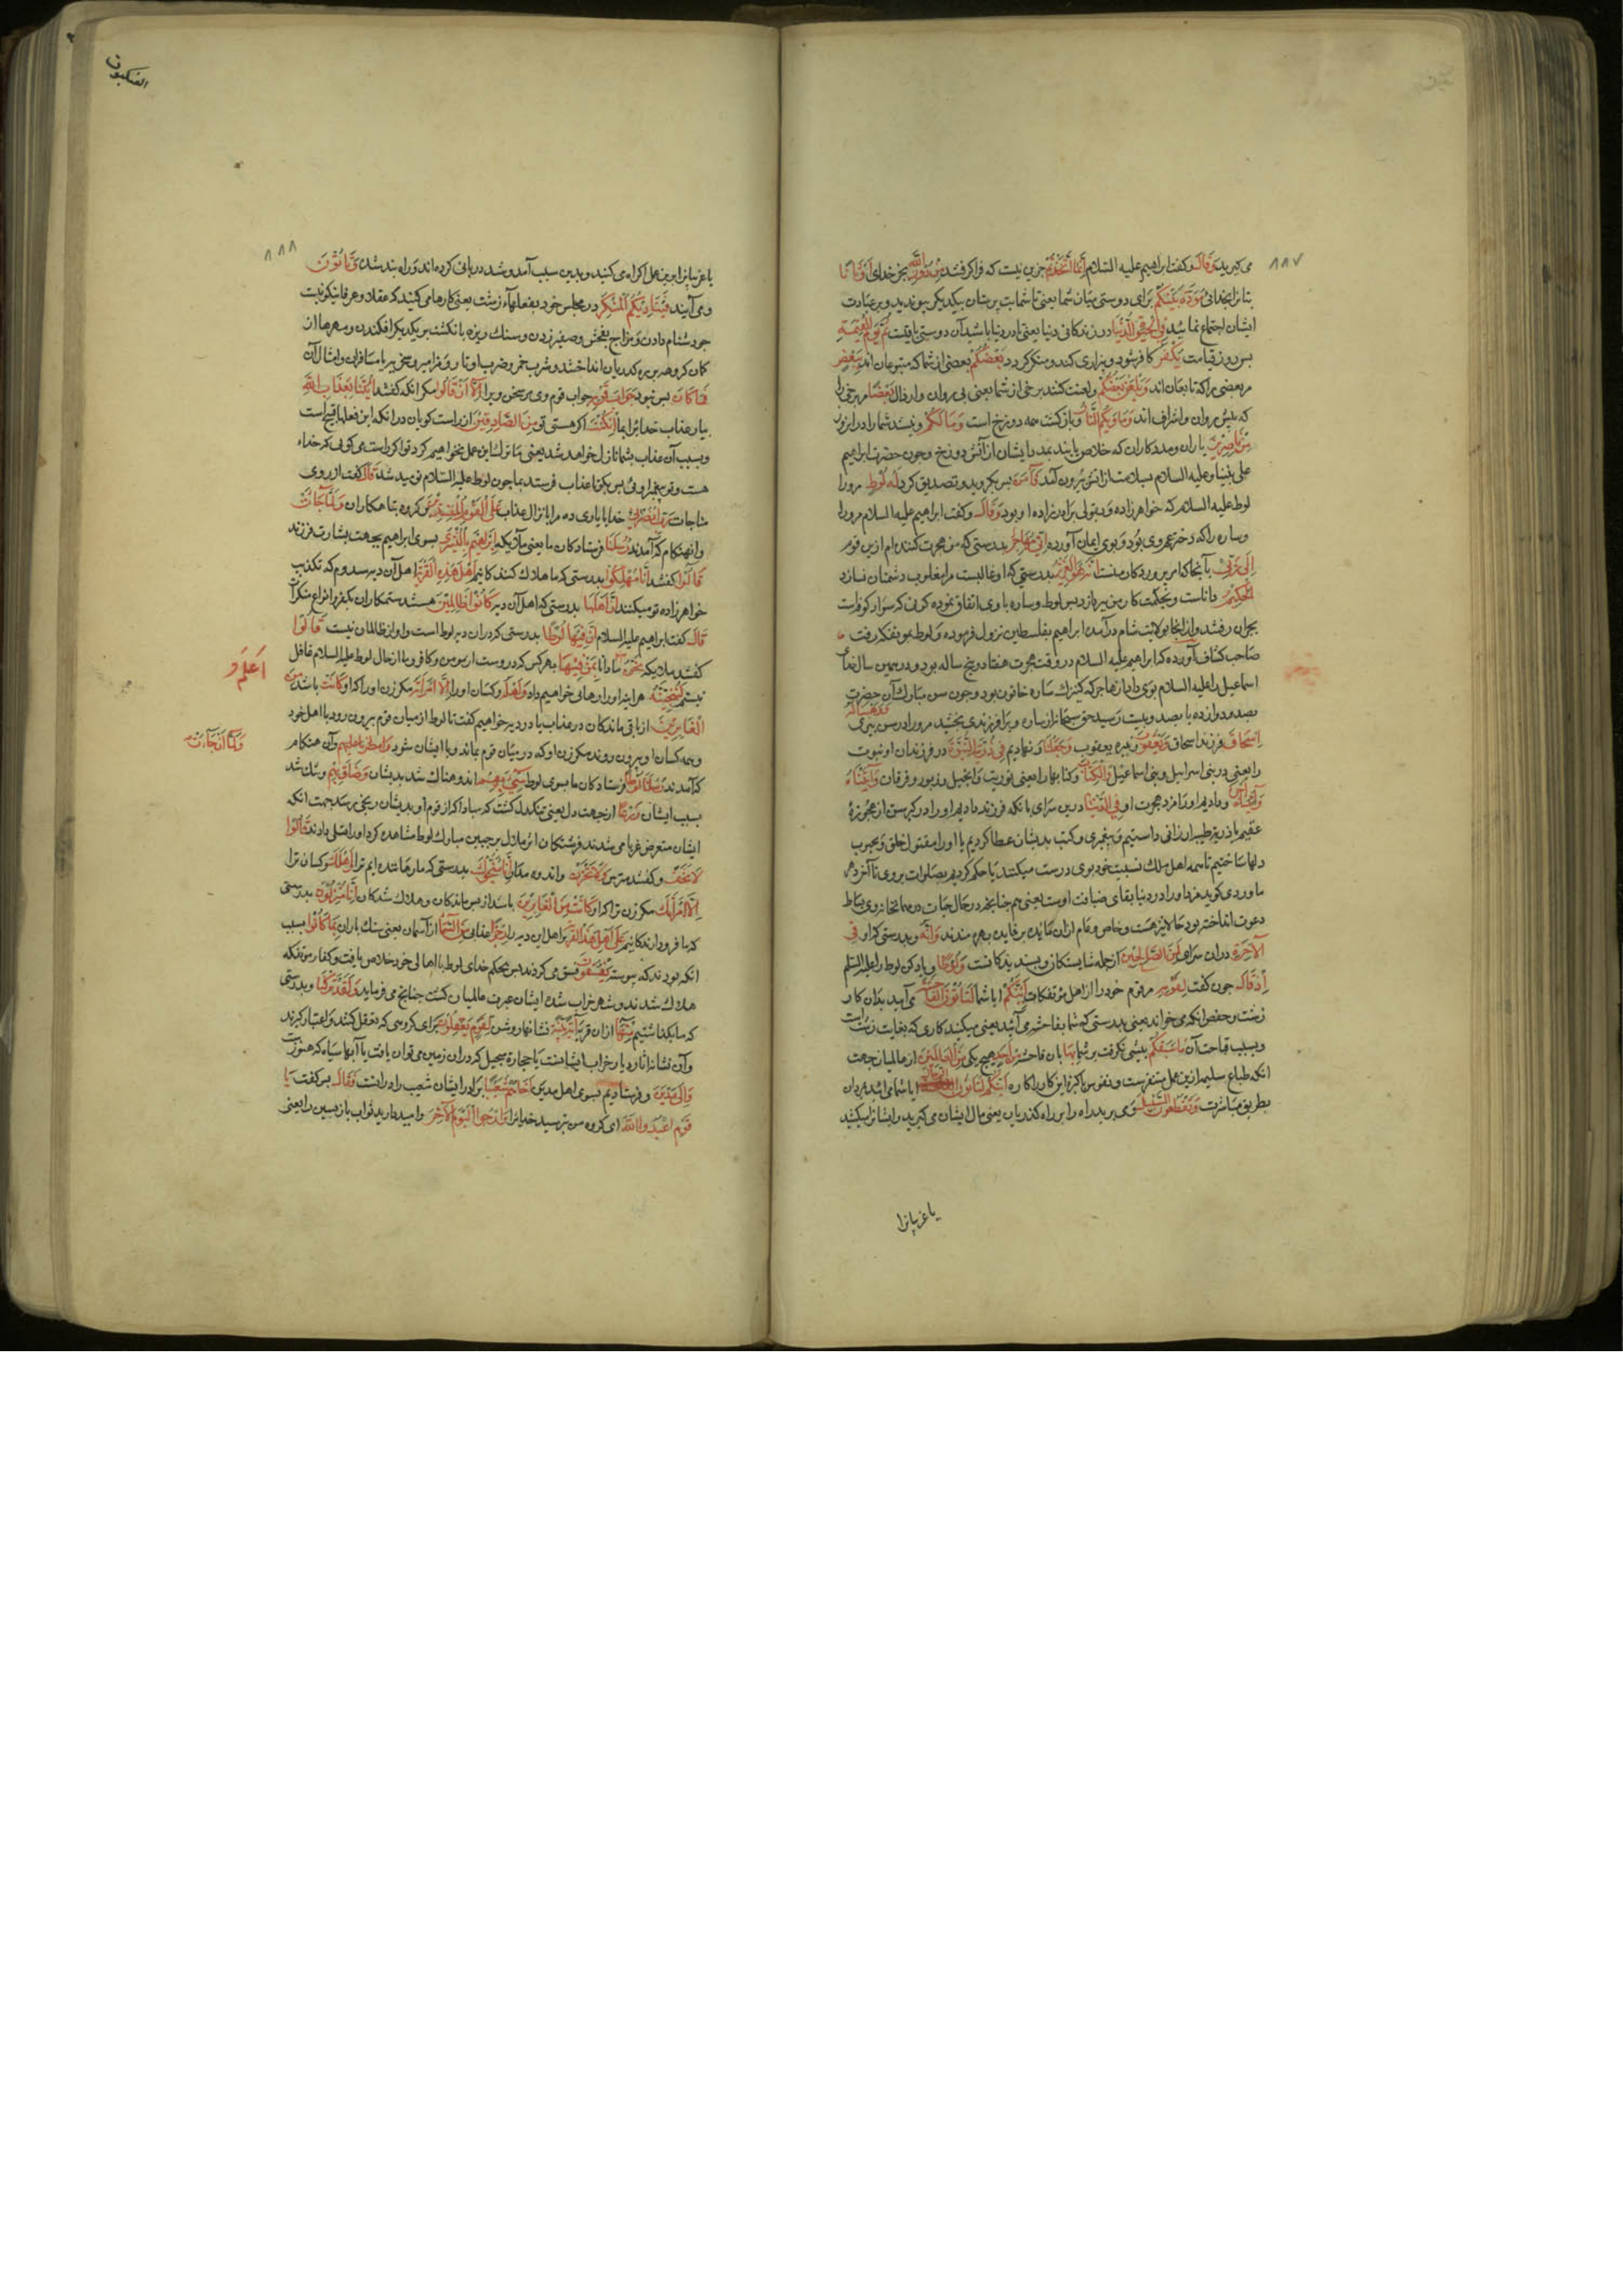 ٨٨٧
می‌گیرید وَقَالَ و گفت ابراهیم علیه السلام اِنَّمَا اتَّخَذْتُمْ جزین نیست که فرا گرفتید مِنْ دُونِ اللَّهِ بجز خدای اَوْثَانًا
بتانرا بخدائی مَوَدَّةَ بَيْنِكُمْ برای دوستی میان شما یعنی تا شما بت پرستان بیکدیگر پیوندید و بر عبادت
ایشان اجتماع نمائید فِی الْحَيٰوةِ الدُّنْيَا در زندکانی دنیا یعنی در دنیا باشید آن دوستی باقیست ثُمَّ يَوْمَ الْقِيٰمَةِ
پس روز قیامت يَكْفُرُ کافر شود و بیزاری کند و منکر کردد بَعْضُكُمْ بعضی از شما که متبوعان اند بِبَعْضٍ
مر بعضی را که تابعان اند وَيَلْعَنُ بَعْضُكُمْ و لعنت کنند برخی از شما یعنی پی روان و ارذال بَعْضًا مر برخی را
که پیش روان و اشراف اند وَمَأْوٰيكُمُ النَّارُ و بازکشت همه دوزخ است وَمَا لَكُمْ و نیست شما را در آن روز
مِنْ نَاصِرِينَ یاران و مددکاران که خلاص یابند بمدد ایشان از آتش دوزخ و چون حضرت ابراهیم
علی نبینا و علیه السلام بسلامت از آتش بیرون آمد فَاٰمَنَ پس بکروید و تصدیق کرد لَهُ لُوطٌ مرورا
لوط علیه السلام که خواهرزاده و بقولی برادرزاده او بود وَقَالَ و گفت ابراهیم علیه السلام مرورا
و ساره را که دختر عم وی بود و بوی ایمان آورده اِنِّي مُهَاجِرٌ بدرستی که من هجرت کننده‌ام ازین قوم
اِلٰى رَبِّي بآنجا که امر پروردکار منست اِنَّهُ هُوَ الْعَزِيزُ بدرستی که او غالبست مرا مغلوب دشمنان نسازد
الْحَكِيمُ داناست و بحکمت کار من بپردازد پس لوط و ساره با وی اتفاق نموده از کوثی که سواد کوفه است
بحران رفتند و از آنجا بولایت شام درآمدن ابراهیم بفلسطین نزول فرموده و لوط بمؤتفکه رفت
صاحب کشاف آورده که ابراهیم علیه السلام در وقت هجرت هفتاد و پنج ساله بود و در همین سال خدای
اسماعیل را علیه السلام بوی داد از هاجر که کنیزک ساره خاتون بود و چون سن مبارک آن حضرت
بصد و دوازده یا بصد و بیست رسید حق سبحانه از ساره ویرا فرزندی بخشید مرورا در سن پیری وَوَهَبْنَا لَهُ
اِسْحَاقَ فرزند اسحاق وَيَعْقُوبَ و نبیره یعقوب وَجَعَلْنَا و نهادیم فِي ذُرِّيَّتِهِ النُّبُوَّةَ در فرزندان او نبوت
را یعنی در بنی اسرائیل و بنی اسماعیل وَالْكِتَابَ و کتابها را یعنی توریت و انجیل و زبور و فرقان وَاٰتَيْنَاهُ
اَجْرَهُ و دادیم او را مزد هجرت او فِي الدُّنْيَا درین سرای بآنکه فرزند دادیم او را در کبر سن از عجوزه
عقیم یا ذریه طیبه ارزانی داشتیم و پیغمبری و کتب بدیشان عطا کردیم یا او را مقبول خلق و محبوب
دلها ساختیم تا همه اهل ملل نسبت خود بوی درست میکنند یا حکم کردیم بصلوات بر وی تا آخر دهر
ماوردی گوید مزد او را در دنیا بقای ضیافت اوست یعنی همچنانچه در حال حیات در مهمانخانه وی بساط
دعوت انداخته بود حالا نیز هست و خاص و عام از آن مائده پر فایده بهره مندند وَاِنَّهُ و بدرستی که او فِي
الْاٰخِرَةِ در آن سرای لَمِنَ الصَّالِحِينَ از جمله شایستکان و پسندیدکانست وَلُوطًا و یاد کن لوط را علیه السلام
اِذْ قَالَ چون گفت لِقَوْمِهِ مر قوم خود را از اهل مؤتفکات اَئِنَّكُمْ آیا شما لَتَأْتُونَ الْفَاحِشَةَ می‌آیید بدان کار
زشت و حفص انکم می‌خواند یعنی بدرستی که شما بفاحشه می‌آئید یعنی میکنید کاری که بغایت زشت است
و بسبب قباحت آن مَا سَبَقَكُمْ پیشی نگرفت بر شما بِهَا بآن فاحشه مِنْ اَحَدٍ هیچ یکی مِنَ الْعَالَمِينَ از عالمیان جهت
آنکه طباع سلیم ازین عمل متنفرست و نفوس اکثر این کار را کاره اَئِنَّكُمْ لَتَأْتُونَ الرِّجَالَ آیا شما می‌آئید بمردان
بطریق مباشرت وَتَقْطَعُونَ السَّبِيلَ و می‌برید راه را بر راه کذریان یعنی مال ایشان می‌گیرید و ایشانرا میکشید
یا غریبانرا
العنکبوت
٨٨٨
یا غریبانرا برین عمل اکراه می‌کنید و بدین سبب آمد و شد در باقی کرده‌اند و راه بند شده وَتَأْتُونَ
و می‌آیید فِي نَادِيكُمُ الْمُنْكَرَ در مجلس خود بفعلهاء زشت یعنی کارها می‌کنید که عقلا و عرفا نیکو نیست
چو دشنام دادن و مزاح بفحش و صفیر زدن و سنک ریزه بانکشت بر یکدیگر افکندن و مهرها از
کمان کروهه بر رهکذریان انداختند و شرب خمر و ضرب اوتار و مزامیر و سخریه با مسافران و امثال آن
فَمَا كَانَ پس نبود جَوَابَ قَوْمِهِ جواب قوم وی بر سخن ویرا اِلَّا اَنْ قَالُوا مکر آنکه گفتند ائْتِنَا بِعَذَابِ اللَّهِ
بیار عذاب خدا برا بما اِنْ كُنْتَ اکر هستی تو مِنَ الصَّادِقِينَ از راست کویان در آنکه این فعلها قبیح است
و بسبب آن عذاب بشما نازل خواهد شد یعنی ما ترک این عمل نخواهیم کرد تو اکر راست می‌کوئی که خداء
هست و تو پیغمبر اوئی پس بکو تا عذاب فرستد بما چون لوط علیه السلام نومید شد قَالَ گفت از روی
مناجات رَبِّ انْصُرْنِي خدایا یاری ده مرا بانزال عذاب عَلَى الْقَوْمِ الْمُفْسِدِينَ بر کروه تباهکاران وَلَمَّا جَاءَتْ
و آنهنکام که آمدند رُسُلُنَا فرستادکان ما یعنی ملائکه اِبْرَاهِيمَ بِالْبُشْرٰى بسوی ابراهیم بجهت بشارت فرزند
قَالُوا گفتند اِنَّا مُهْلِكُوا بدرستی که ما هلاک کنندکانیم اَهْلِ هٰذِهِ الْقَرْيَةِ اهل آن دیه سدوم که تکذیب
خواهرزاده تو میکنند اِنَّ اَهْلَهَا بدرستی که اهل آن دیه كَانُوا ظَالِمِينَ هستند ستمکاران بکفر و انواع منکرات
قَالَ گفت ابراهیم علیه السلام اِنَّ فِيهَا لُوطًا بدرستی که در آن دیه لوط است و او از ظالمان نیست قَالُوا
گفتند ملائکه نَحْنُ اَعْلَمُ ما داناتریم بِمَنْ فِيهَا بهر کس که دروست از مومن و کافر و ما از حال لوط علیه السلام غافل
نیستیم لَنُنَجِّيَنَّهُ هر اینه او را رهائی خواهیم داد وَاَهْلَهُ و کسان او را اِلَّا امْرَاَتَهُ مکر زن او را که او كَانَتْ باشد مِنَ
الْغَابِرِينَ از باقی ماندکان در عذاب یا در دیه خواهیم گفت تا لوط از میان قوم بیرون رود با اهل خود
و همه کسان او بیرون روند مکر زن او که در میان قوم بماند و با ایشان شود وَلَمَّا اَنْ جَاءَتْ و آن هنکام
که آمدند رُسُلُنَا لُوطًا فرستادکان ما بسوی لوط سِيءَ بِهِمْ اندوهناک شد بدیشان وَضَاقَ بِهِمْ و تنک شد
بسبب ایشان ذَرْعًا از جهت دل یعنی تنکدل کشت که مبادا که از قوم او بدیشان رنجی برسد بجهت آنکه
ایشان متعرض غربا می‌شدند فرشتکان اثر ملال بر جبین مبارک لوط مشاهده کرده او را تسلی دادند وَقَالُوا
لَا تَخَفْ و گفتند مترس وَلَا تَحْزَنْ و اندوه مدار اِنَّا مُنَجُّوكَ بدرستی که ما رهاننده‌ایم ترا وَاَهْلَكَ و کسان ترا
اِلَّا امْرَاَتَكَ مکر زن ترا که او كَانَتْ مِنَ الْغَابِرِينَ باشد از بس ماندکان و هلاک شدکان اِنَّا مُنْزِلُونَ بدرستی
که ما فرود آرندکانیم عَلٰى اَهْلِ هٰذِهِ الْقَرْيَةِ بر اهل این دیه رِجْزًا عذابی مِنَ السَّمَاءِ از آسمان یعنی سنک باران بِمَا كَانُوا بسبب
آنکه بودند که پیوسته يَفْسُقُونَ فسق می‌کردند پس بحکم خدای لوط با اهالی خود خلاص یافت و کفار مؤتفکه
هلاک شدند و شهر خراب شده ایشان عبرت عالمیان کشت چنانچه می‌فرماید وَلَقَدْ تَرَكْنَا و بدرستی
که ما بگذاشتیم مِنْهَا از آن قریه اٰيَةً بَيِّنَةً نشانها روشن لِقَوْمٍ يَعْقِلُونَ برای کروهی که تعقل کنند و اعتبار گیرند
و آن نشانه آثار دیار خراب ایشانست یا حجاره سجیل که در آن زمین می‌توان یافت یا آبها سیاه که هنوز هست
وَاِلٰى مَدْيَنَ و فرستادیم بسوی اهل مدین اَخَاهُمْ شُعَيْبًا برادر ایشان شعیب را درست فَقَالَ پس گفت يَا
قَوْمِ اعْبُدُوا اللَّهَ ای کروه من بپرستید خدا برا وَارْجُوا الْيَوْمَ الْاٰخِرَ و امید دارید ثواب باز پسین را یعنی
اَعْلَمُ
وَلَمَّا اَنْ جَاءَتْ